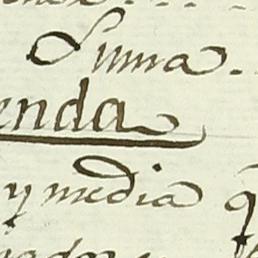 Suma.
enda
y media q